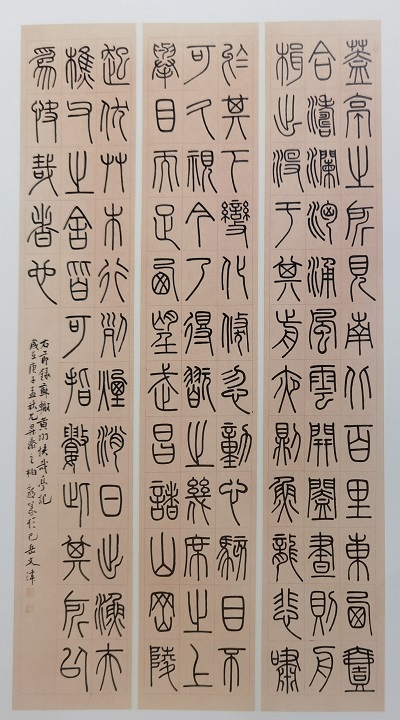 蓋亭之所見南北百里東西壹
舍濤瀾洶涌風雲開闔晝則舟
楫出没于其前夜則魚龍悲嘯
於其下變化倏忽動心駭目不
可久視今乃得翫之幾席之上
舉目而足西望武昌諸山岡陵
起伏艸木行列煙消日出漁夫
樵父之舍皆可指數此其所以
為快哉者也
右節錄蘇轍黃州快哉亭記
歲在庚子孟秋